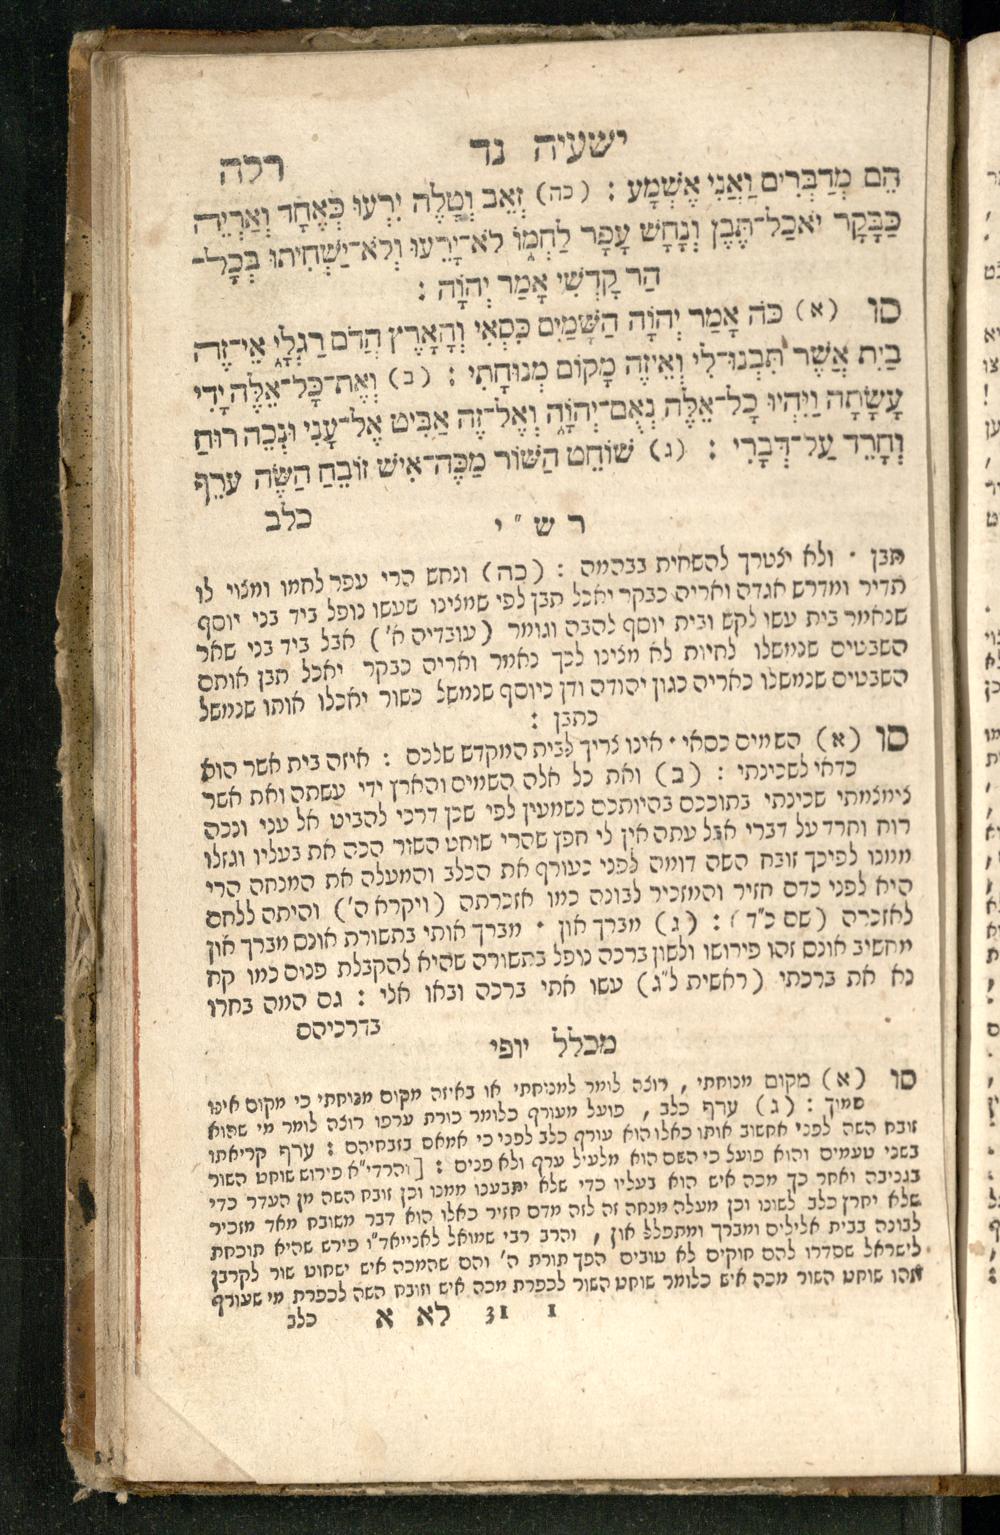 ישעיה נד
רלה
הֵם מְדַבְּרִים וַאֲנִי אֶשְׁמָע : (כה) זְאֵב וְטָלֶה יִרְעוּ כְּאֶחָד וְאַרְיֵה
כַּבָּקָר יֹאכַל־תֶּבֶן וְנָחָשׁ עָפָר לַחְמוֹ לֹא־יָרֵעוּ וְלֹא־יַשְׁחִיתוּ בְּכָל־
הַר קָדְשִׁי אָמַר יְהוָֹה :
סו (א) כֹּה אָמַר יְהוָֹה הַשָּׁמַיִם כִּסְאִי וְהָאָרֶץ הֲדֹם רַגְלָי אֵי־זֶה
בַיִת אֲשֶׁר תִּבְנוּ־לִי וְאֵיזֶה מָקוֹם מְנוּחָתִי : (ב) וְאֶת־כָּל־אֵלֶּה יָדִי
עָשָׂתָה וַיִּהְיוּ כָל־אֵלֶּה נְאֻם־יְהוָֹה וְאֶל־זֶה אַבִּיט אֶל־עָנִי וּנְכֵה רוּחַ
וְחָרֵד עַל־דְּבָרִי : (ג) שׁוֹחֵט הַשּׁוֹר מַכֶּה־אִישׁ זוֹבֵחַ הַשֶּׂה עֹרֵף
כלב
ר ש " י
תבן · ולא יצטרך להשחית בבהמה : (כה) ונחש הרי עפר לחמו ומצוי לו
תדיר ומדרש אגדה ואריה כבקר יאכל תבן לפי שמצינו שעשו נופל ביד בני יוסף
שנאמר בית עשו לקש ובית יוסף להבה וגומר (עובדיה א') אבל ביד בני שאר
השבטים שנמשלו לחיות לא מצינו לכך נאמר ואריה כבקר יאכל תבן אותם
השבטים שנמשלו כאריה כגון יהודה ודן כיוסף שנמשל כשור יאכלו אותו שנמשל
כתבן :
סו (א) השמים כסאי · אינו צריך לבית המקדש שלכם : איזה בית אשר הוא
כדאי לשכינתי : (ב) ואת כל אלה השמים והארץ ידי עשתה ואת אשר
צימצמתי שכינתי בתוככם בהיותכם נשמעין לפי שכן דרכי להביט אל עני ונכה
רוח וחרד על דברי אבל עתה אין לי חפץ שהרי שוחט השור הכה את בעליו וגזלו
ממנו לפיכך זובח השה דומה לפני כעורף את הכלב והמעלה את המנחה הרי
היא לפני כדם חזיר והמזכיר לבונה כמו אזכרתה (ויקרא ה') והיתה ללחם
לאזכרה (שם כ"ד) : (ג) מברך און · מברך אותי בתשורת אונם מברך און
מחשיב אונס זהו פירושו ולשון ברכה נופל בתשורה שהיא להקבלת פנים כמו קח
נא את ברכתי (ראשית ל"ג) עשו אתי ברכה ובאו אלי : גם המה בחרו
בדרכיהם
מכלל יופי
סו (א) מקום מנוחתי , רוצה לומר למנוחתי או באיזה מקום מנוחתי כי מקום אינו
סמוך : (ג) עורף כלב , פועל מעורף כלומר כורת ערפו רוצה לומר מי שהוא
זובח השה לפני אחשוב אותו כאלו הוא עורף כלב לפני כי אמאס בזבחיהם : ערף קריאתו
בשני טעמים והוא פועל כי השם הוא מלעיל ערף ולא פנים : [והרדי"א פירש שוחט השור
בגניבה ואחר כך מכה איש הוא בעליו כדי שלא יתבענו ממנו וכן זובח השה מן העדר כדי
שלא יחרץ כלב לשונו וכן מעלה מנחה זה לזה מדם חזיר כאלו הוא דבר משובח מאד מזכיר
לבונה בבית אלילים ומברך ומתפלל און , והרב רבי שמואל לאנייאד"ו פירש שהיא תוכחת
לישראל שסדרו להם חוקים לא טובים הפך תורת ה' והם שהמכה איש ישחוט שור לקרבן
וזהו שוחט השור מכה איש כלומר שוחט השור לכפרת מכה איש וזובח השה לכפרת מי שעורף
1 31 לא א
כלב